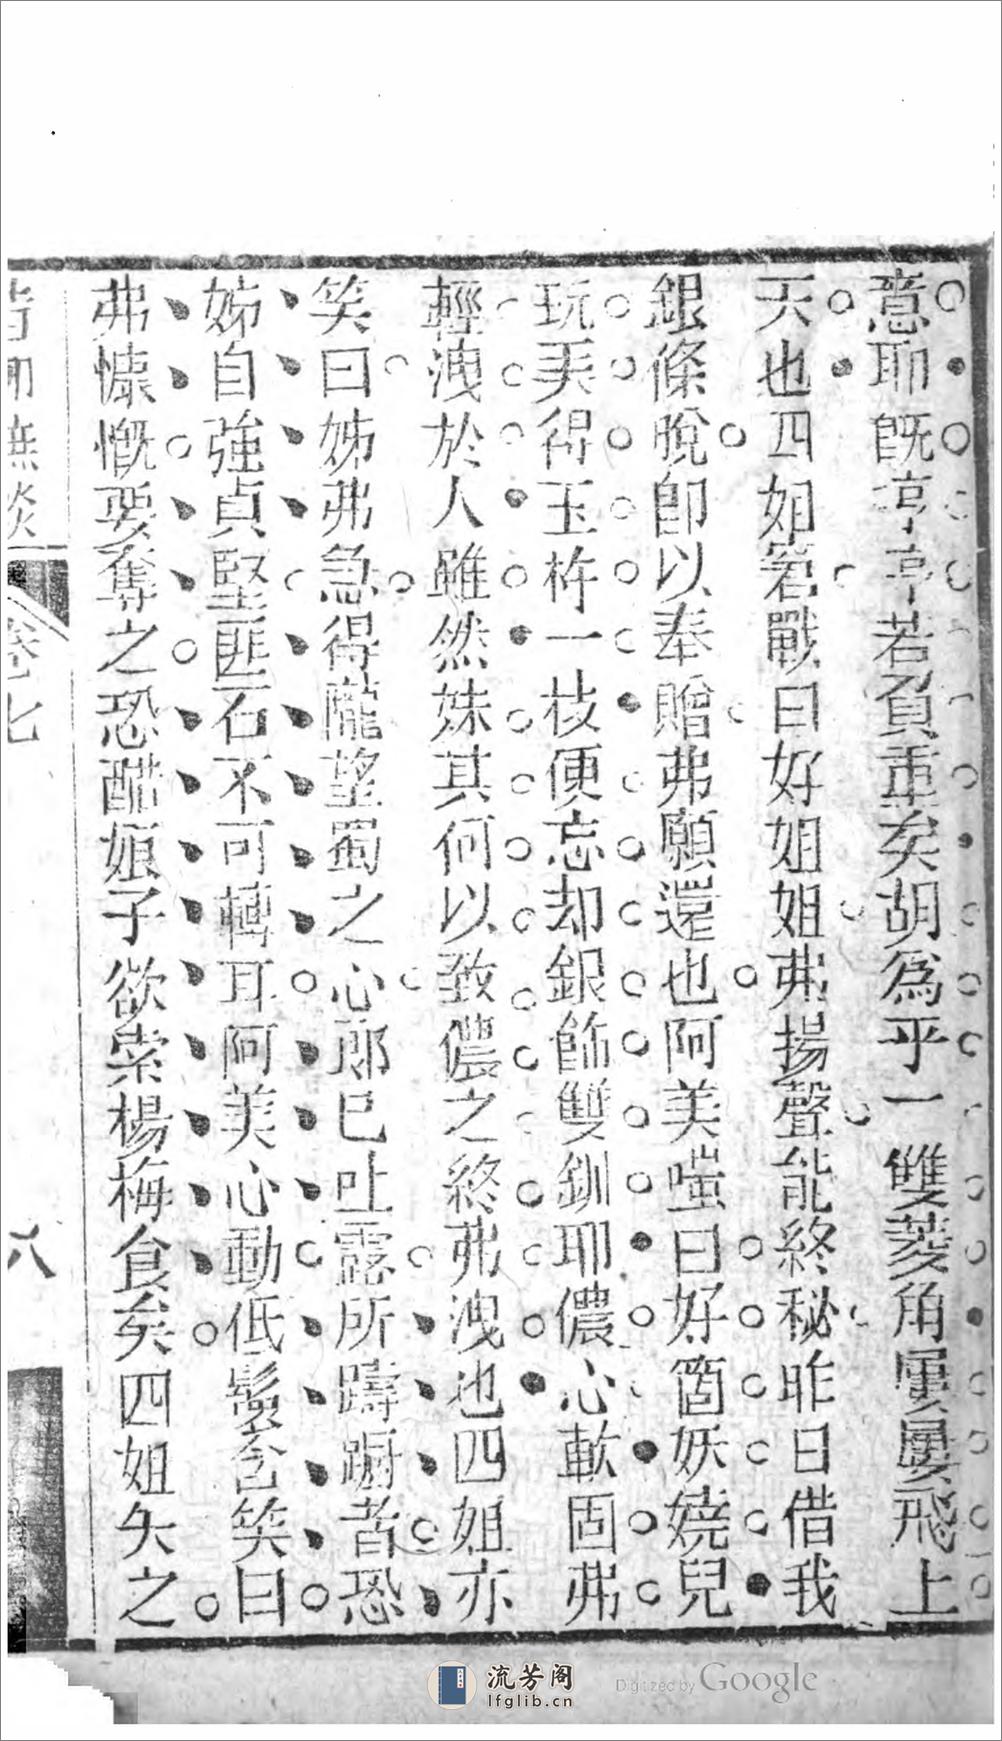 意耶旣渟渟若負重矣胡爲乎一雙菱角屢屢飛上
天也四姐窘戰曰好姐姐弗揚聲能終秘昨日借我
銀條脫卽以奉贈弗願還也阿美嗤曰好箇妖嬈兒
玩美得玉杵一枝便忘却銀飾雙釧耶儂心軟固弗
輕洩於人雖然妹其何以致儂之終弗洩也四姐亦
笑曰姊弗急得隴望蜀之心郎已吐露所躊躇者恐
姊自強貞堅匪石不可轉耳阿美心動低鬟含笑曰
弗慷慨要奪之恐醋娘子欲索楊梅食矣四姐矢之
卷七
八
流芳阁
lfglib.cn
Digitized by Google